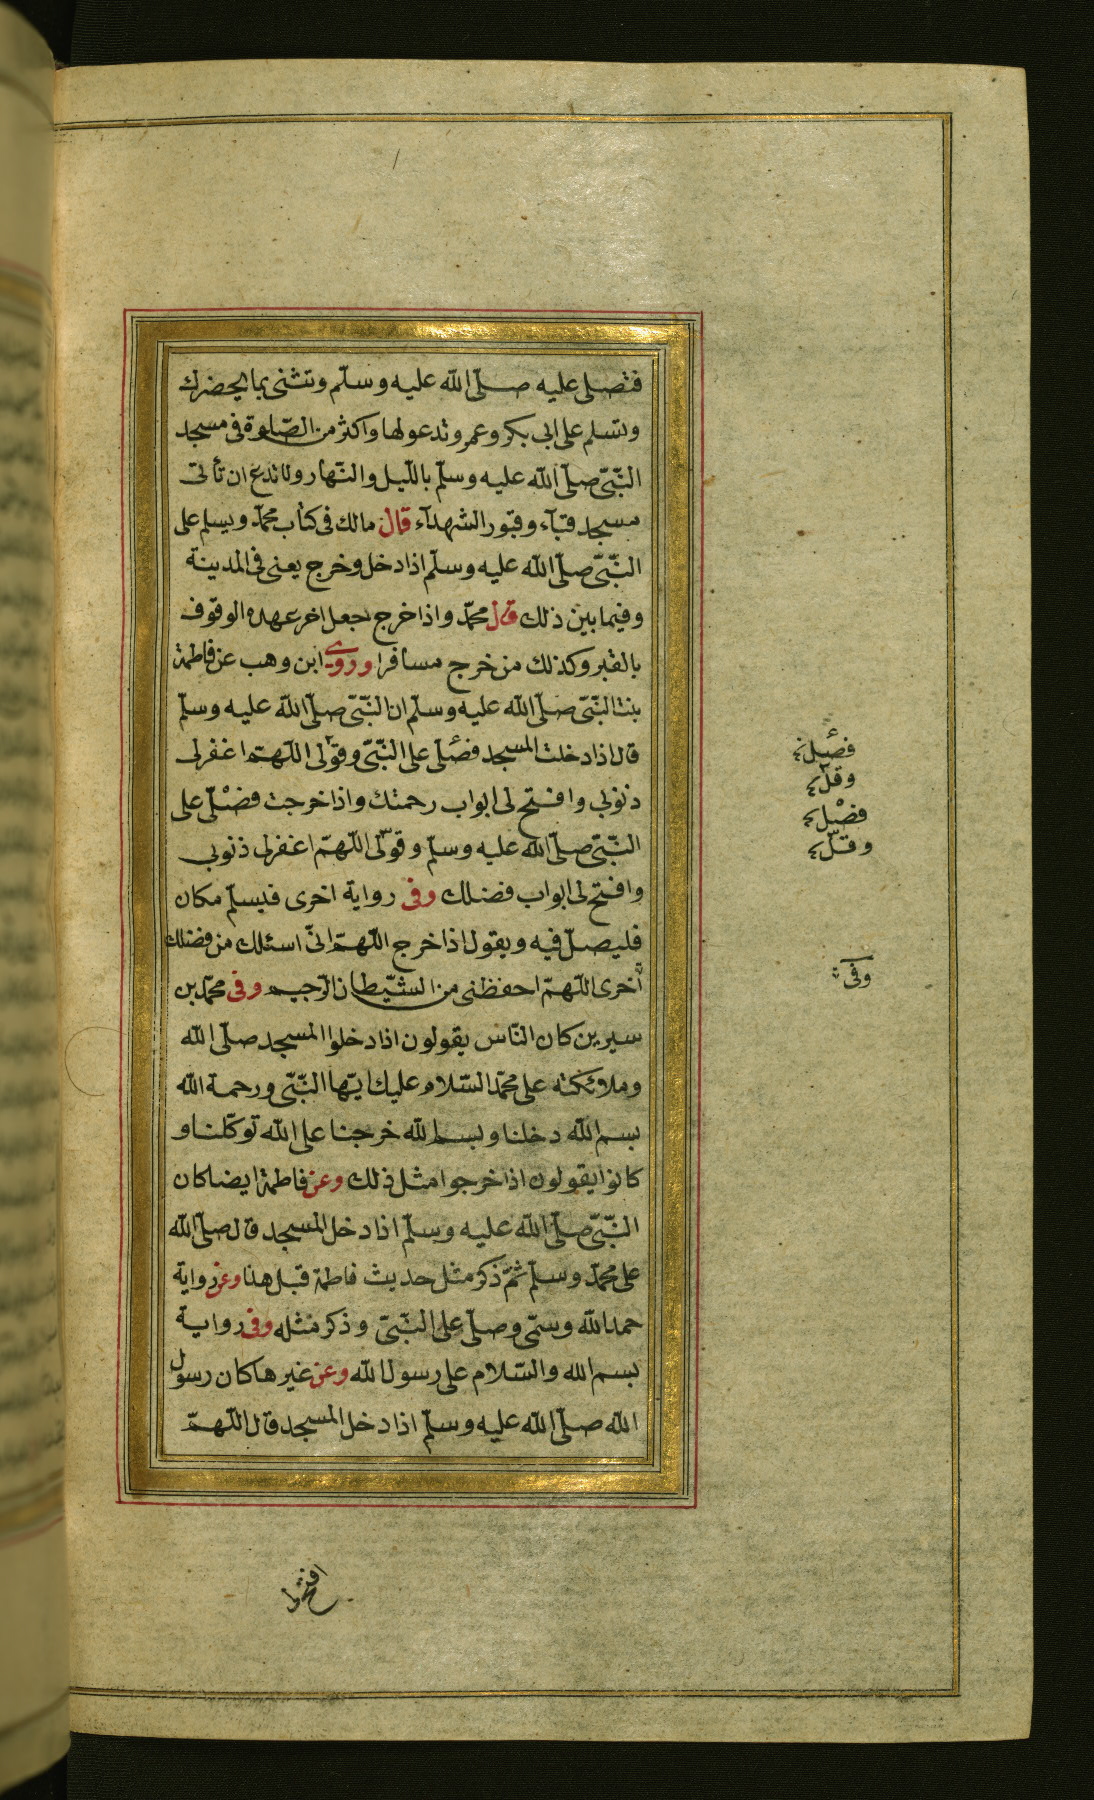 فتصلى عليه صلّى الله عليه وسلّم وتثنى بما يحضرك
وتسلم على ابى بكر وعمر وتدعو لها واكثر من الصّلوة فى مسجد
النّبىّ صلّى الله عليه وسلّم باللّيل والنّهار ولا تدع ان تأتى
مسجد قبآء وقبور الشهدآء قال مالك فى كتاب محمّد ويسلم على
النّبىّ صلّى الله عليه وسلّم اذا دخل وخرج يعنى فى المدينة
وفيما بين ذلك قال محمّد واذا خرج جعل اخر عهده الوقوف
بالقبر وكذلك من خرج مسافرا وروى ابن وهب عن فاطمة
بنت النّبىّ صلّى الله عليه وسلّم ان النّبىّ صلّى الله عليه وسلّم
قال اذا دخلت المسجد فصلّى على النّبىّ وقولى اللّهمّ اغفر لى
ذنوبى وافتح لى ابواب رحمتك واذا خرجت فصلّى على
النّبىّ صلّى الله عليه وسلّم وقولى اللّهمّ اغفر لى ذنوبى
وافتح لى ابواب فضلك وفى رواية اخرى فليسلّم مكان
فليصلّ فيه ويقول اذا خرج اللّهمّ انّى اسئلك من فضلك
أخرى اللّهمّ احفظنى من الشّيطان الرّجيم وفى محمّد بن
سيرين كان النّاس يقولون اذا دخلوا المسجد صلّى الله
وملائكته على محمّد السّلام عليك ايّها النّبىّ ورحمة الله
بسم الله دخلنا وبسم الله خرجنا على الله توكّلنا و
كانوا يقولون اذا خرجوا مثل ذلك وعن فاطمة ايضا كان
النّبىّ صلّى الله عليه وسلّم اذا دخل المسجد قال صلّى الله
على محمّد وسلّم ثمّ ذكر مثل حديث فاطمة قبل هذا وعن رواية
حمد الله وسمّى وصلّى على النّبىّ وذكر مثله وفى رواية
بسم الله والسّلام على رسول الله وعن غيرها كان رسول
الله صلّى الله عليه وسلّم اذا دخل المسجد قال اللّهمّ
فصل
وقل
فصل
وقل
وفى
افتح